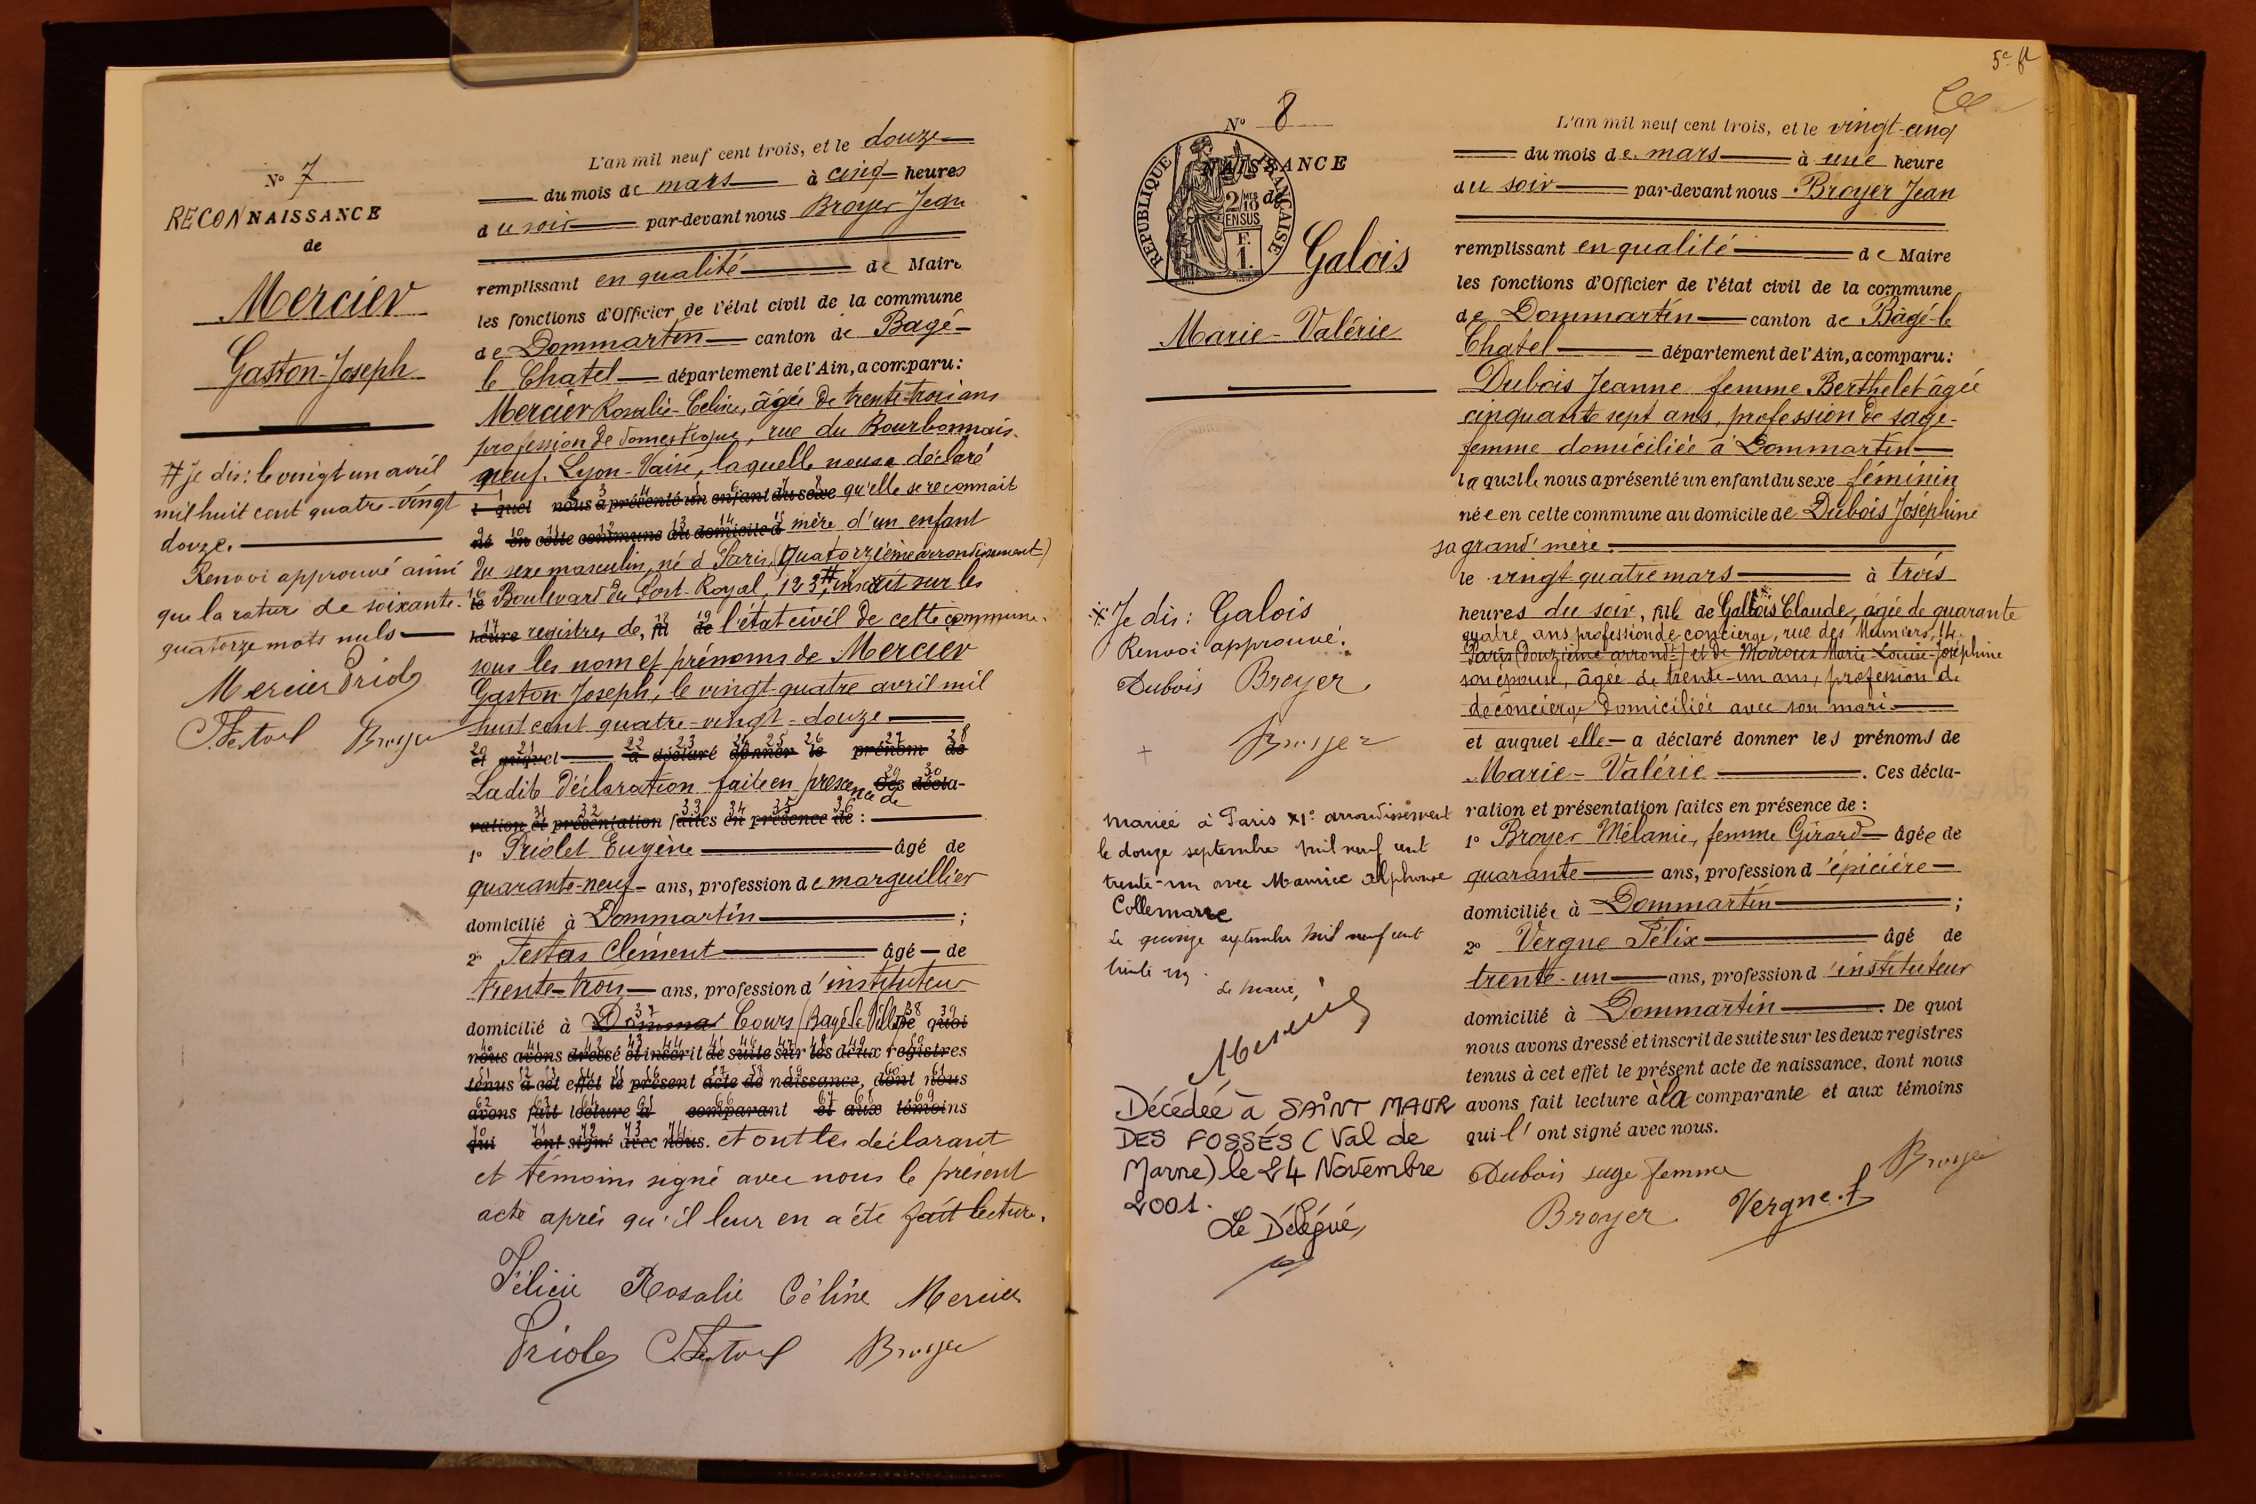 N° 7
RECONNAISSANCE
de
Mercier
Gaston-Joseph
# Je dis: le vingt un avril
mil huit cent quatre-vingt
douze.
Renvoi approuvé ainsi
que la rature de soixante-
quatorze mots nuls
Mercier Priolet
C. Testas Broyer
L'an mil neuf cent trois, et le douze
du mois de mars à cinq heures
du soir par-devant nous Broyer Jean
remplissant en qualité de Maire
les fonctions d'Officier de l'état civil de la commune
de Dommartin canton de Bagé-
le Chatel département de l'Ain, a comparu:
Mercier Rosalie-Celine, âgée de trente-trois ans
profession de domestique, rue du Bourbonnais.
neuf. Lyon-Vaise, laquelle nous a déclaré
1 quel 2 nous 3 a présenté 4 un 5 enfant 6 du 7 sexe 8 qu'elle se reconnait
9 né 10 en 11 cette 12 commune 13 au 14 domicile 15 d mère d'un enfant
du sexe masculin, né à Paris, (quatorzième arrondissement)
16 le Boulevard du Port-Royal, 123,# inscrit sur les
17 heure registres de, 18 fil 19 de l'état civil de cette commune.
sous les nom et prénoms de Mercier
Gaston Joseph, le vingt-quatre avril mil
huit cent quatre-vingt-douze
20 et 21 auquel 22 a 23 déclaré 24 donner 25 26 le 27 prénom 28 de
Ladite déclaration faite en presence de 29 Ces 30 décla-
ration 31 et 32 présentation 33 faites 34 en 35 présence 36 de :
1° Priolet Eugène âgé de
quarante-neuf ans, profession de marguillier
domicilié à Dommartin ;
2° Testas Clément âgé de
trente-trois ans, profession d'instituteur
domicilié à 37 Domma Cours (Bagé-le-Ville 38 De 39 quoi
nous avons dressé et inscrit de suite sur les deux registres
tenus à cet effet le présent acte de naissance, dont nous
avons fait lecture a comparant et aux témoins
qui ont signé avec nous. et ont les déclarant
et témoins signé avec nous le présent
acte après qu'il leur en a été fait lecture.
Félicie Rosalie Céline Mercier
Priolet C. Testas Broyer
5e ft
N° 8
NAISSANCE
de
REPUBLIQUE FRANÇAISE
2/10 EN SUS
F. 1.
Galois
Marie-Valérie
Je dis: Galois
Renvoi approuvé.
Dubois Broyer
Broyer
mariée à Paris XIe arrondissement
le douze septembre mil neuf cent
trente-un avec Maurice Alphonse
Collemarre
Le quinze septembre mil neuf cent
trente un.
Le Maire,
Décédée à SAINT MAUR
DES FOSSÉS (Val de
Marne) le 24 Novembre
2001.
Le Délégué,
L'an mil neuf cent trois, et le vingt-cinq
du mois de mars à une heure
du soir par-devant nous Broyer Jean
remplissant en qualité de Maire
les fonctions d'Officier de l'état civil de la commune
de Dommartin canton de Bâgé-le
Chatel département de l'Ain, a comparu:
Dubois Jeanne femme Berthelet âgée
cinquante sept ans, profession de sage-
femme domiciliée à Dommartin
laquelle nous a présenté un enfant du sexe féminin
née en cette commune au domicile de Dubois Joséphine
sa grand'mère.
le vingt quatre mars à trois
heures du soir, fille de Gallois Claude, âgée de quarante
quatre ans profession de concierge, rue des Meuniers, 14.
Paris (douzième arrondt) et de Moiroux Marie-Louise-Joséphine
son épouse, âgée de trente-un ans, profession de
de concierge domiciliée avec son mari.
et auquel elle a déclaré donner les prénoms de
Marie-Valérie . Ces décla-
ration et présentation faites en présence de :
1° Broyer Mélanie, femme Girard âgée de
quarante ans, profession d'épicière
domiciliée à Dommartin ;
2° Vergne Félix âgé de
trente-un ans, profession d'instituteur
domicilié à Dommartin . De quoi
nous avons dressé et inscrit de suite sur les deux registres
tenus à cet effet le présent acte de naissance, dont nous
avons fait lecture à la comparante et aux témoins
qui l'ont signé avec nous.
Dubois sage femme Broyer
Broyer Vergne. f